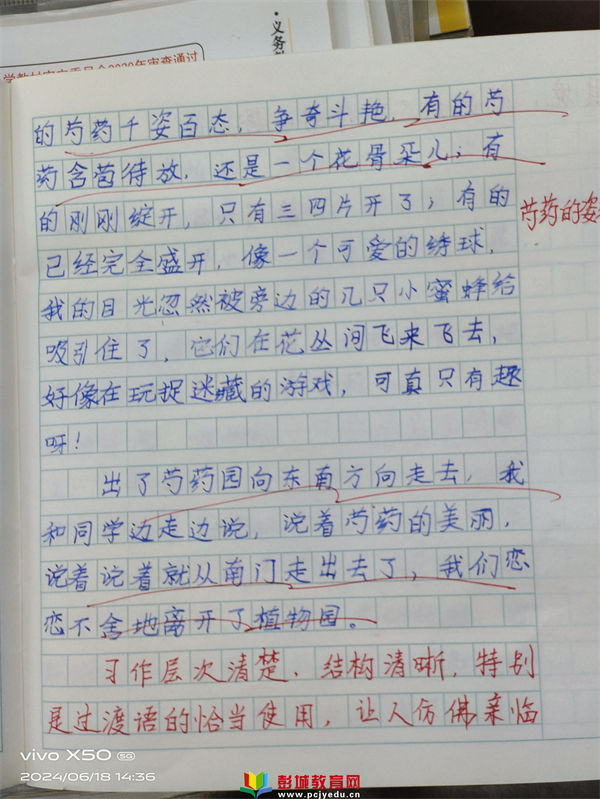 ·义务
学教材审定委员会2020年审查通过
的芍药千姿百态，争奇斗艳，有的芍
药含苞待放，还是一个花骨朵儿；有
的刚刚绽开，只有三四片开了；有的
芍药的姿
已经完全盛开，像一个可爱的绣球。
我的目光忽然被旁边的几只小蜜蜂给
吸引住了，它们在花丛间飞来飞去，
好像在玩捉迷藏的游戏，可真只有趣
呀！
出了芍药园向东南方向走去，我
和同学边走边说，说着芍药的美丽，
说着说着就从南门走出去了，我们恋
恋不舍地离开了植物园。
习作层次清楚，结构清晰，特别
是过渡语的恰当使用，让人仿佛亲临
vivo X50 5G
2024/06/18 14:36
彭城教育网
www.pcjyedu.cn